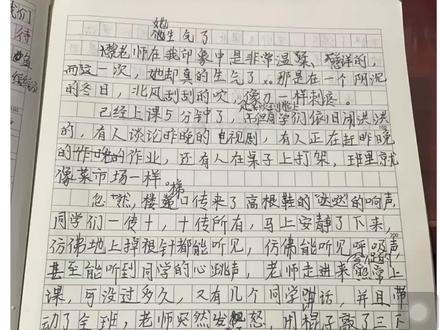 她生气了
老师在我印象中是非常温柔、慈祥的,
而这一次,她却真的生气了。那是在一个阴沉
的冬日,北风刮刮的吹,像刀一样刺疼。
已经上课5分钟了,同学们依旧闹洪洪
的,有人谈论昨晚的电视剧,有人正在赶昨晚
的作业,还有人在桌子上打架,班里就
像菜市场一样。
忽然,楼梯口传来了高根鞋的"哒哒"的响声,
同学们一使十,十传所有,马上安静了下来,
仿佛地上掉根针都能听见,仿佛能听见呼吸声,
甚至能听到同学的心跳声,老师走进来
课,可没过多久,又有几个同学讲话,并且带
动了全班,老师突然发怒,用棍子敲了三下